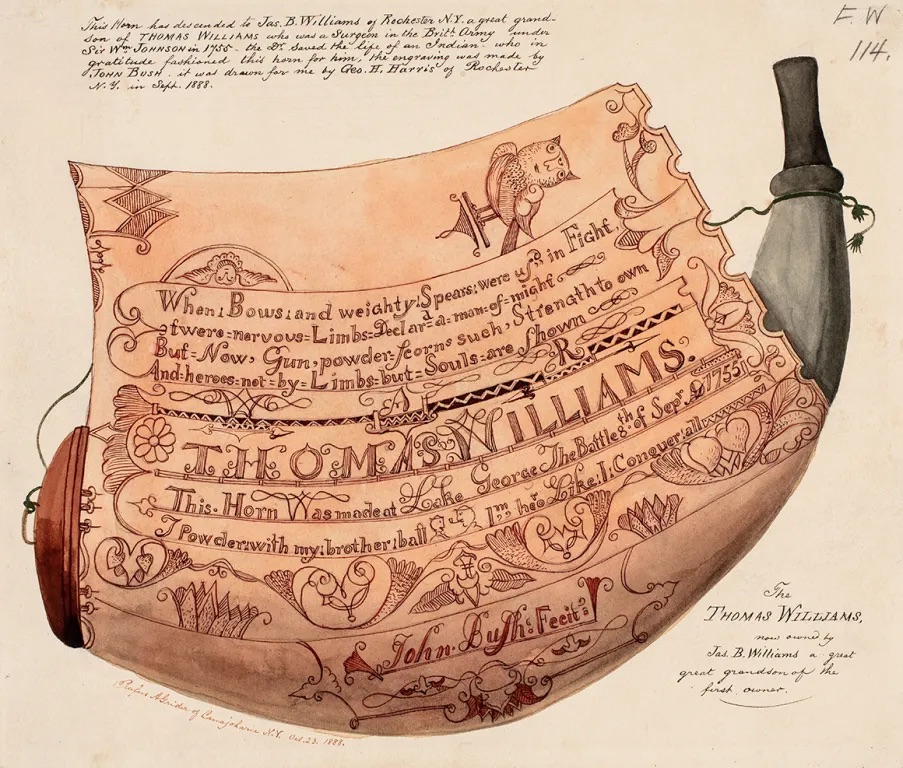 This Horn has descended to Jas. B. Williams of Rochester N.Y. a great grand-
son of THOMAS WILLIAMS who was a Surgeon in the Brit. Army under
Sir Wm JOHNSON in 1755 - the Dr. saved the life of an Indian - who in
gratitude fashioned this horn for him, the engraving was made by
JOHN BUSH. it was drawn for me by Geo. H. Harris of Rochester
N.Y. in Sept. 1888.
E. W
114.
When:Bows:and weighty:Spears:were us'd in Fight,
twere=nervous=Limbs=Declar'd=a=man=of=might
But=Now, Gun,powder=scorns such, Strength to own
And=heroes=not=by=Limbs=but=Souls=are shown
W A R
THOMAS WILLIAMS.
This. Horn Was made at Lake George The Battle 8th of Sepr 1755
I Powder:with my:brother:ball Like:I:Conquer:all
John Bush: Fecit:
Rufus A. Grider of Canajoharie N.Y. Oct. 23. 1888.
The
THOMAS WILLIAMS,
now owned by
Jas. B. Williams a great
great grandson of the
first owner.